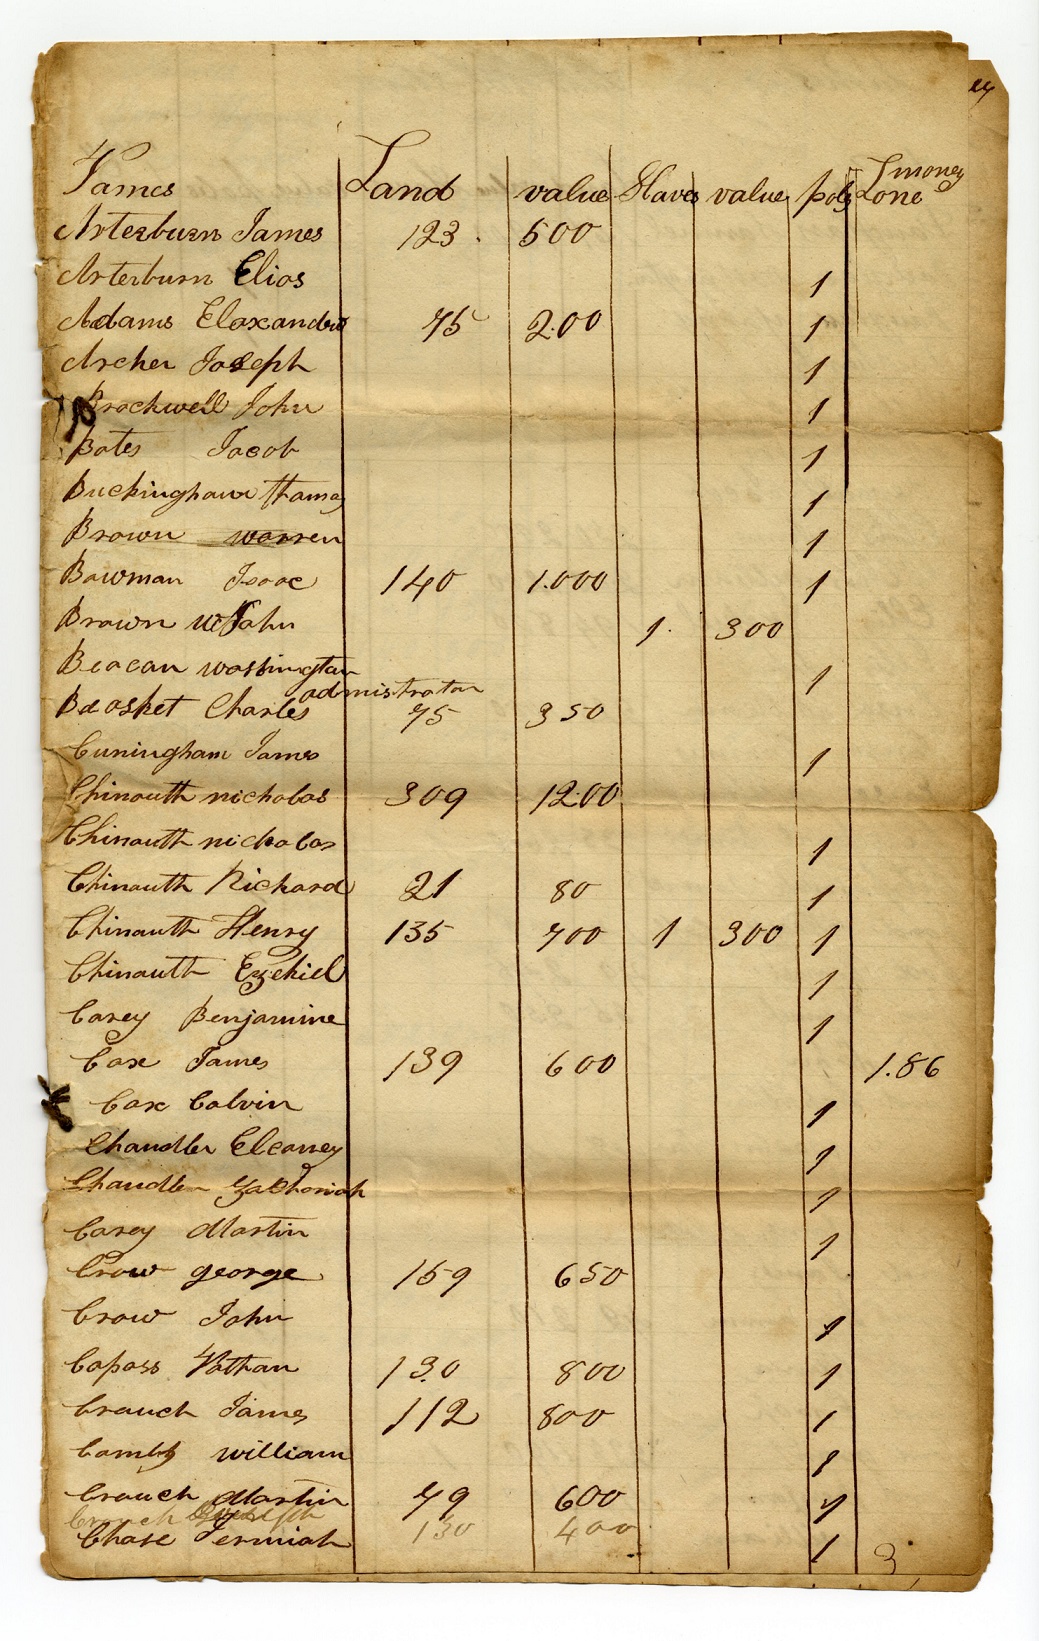 ey
Names Land value Slaves value poly Lone money
Arterburn James 123 . 500
Arterburn Elias 1
Adams Elaxander 75 2.00 1
Archer Joseph 1
Brackwell John 1
Bates Jacob 1
Buckingham 1
Brown warren 1
Bowman Isaac 140 1.000 1
Brown W John 1. 300
Beacan washington 1
admistrator
Baasket Charles 75 350
Cuningham James 1
Chinauth nicholas 309 12.00
Chinauth nicholas 1
Chinauth Richard 21 80 1
Chinauth Henry 135 700 1 300 1
Chinauth Ezekiel 1
Carey Benjamine 1
Cax James 139 600 1.86
Cax Calvin 1
Chandler Eleaney 1
Chandler Zachariah 1
Carey Martin 1
Crow george 159 650
Crow John 1
Capass Nathan 130 800 1
Crauch James 112 800 1
William 1
Crauch Martin 79 600 1
Crauch Joseph 130 400
Chase Jermiah 1 3